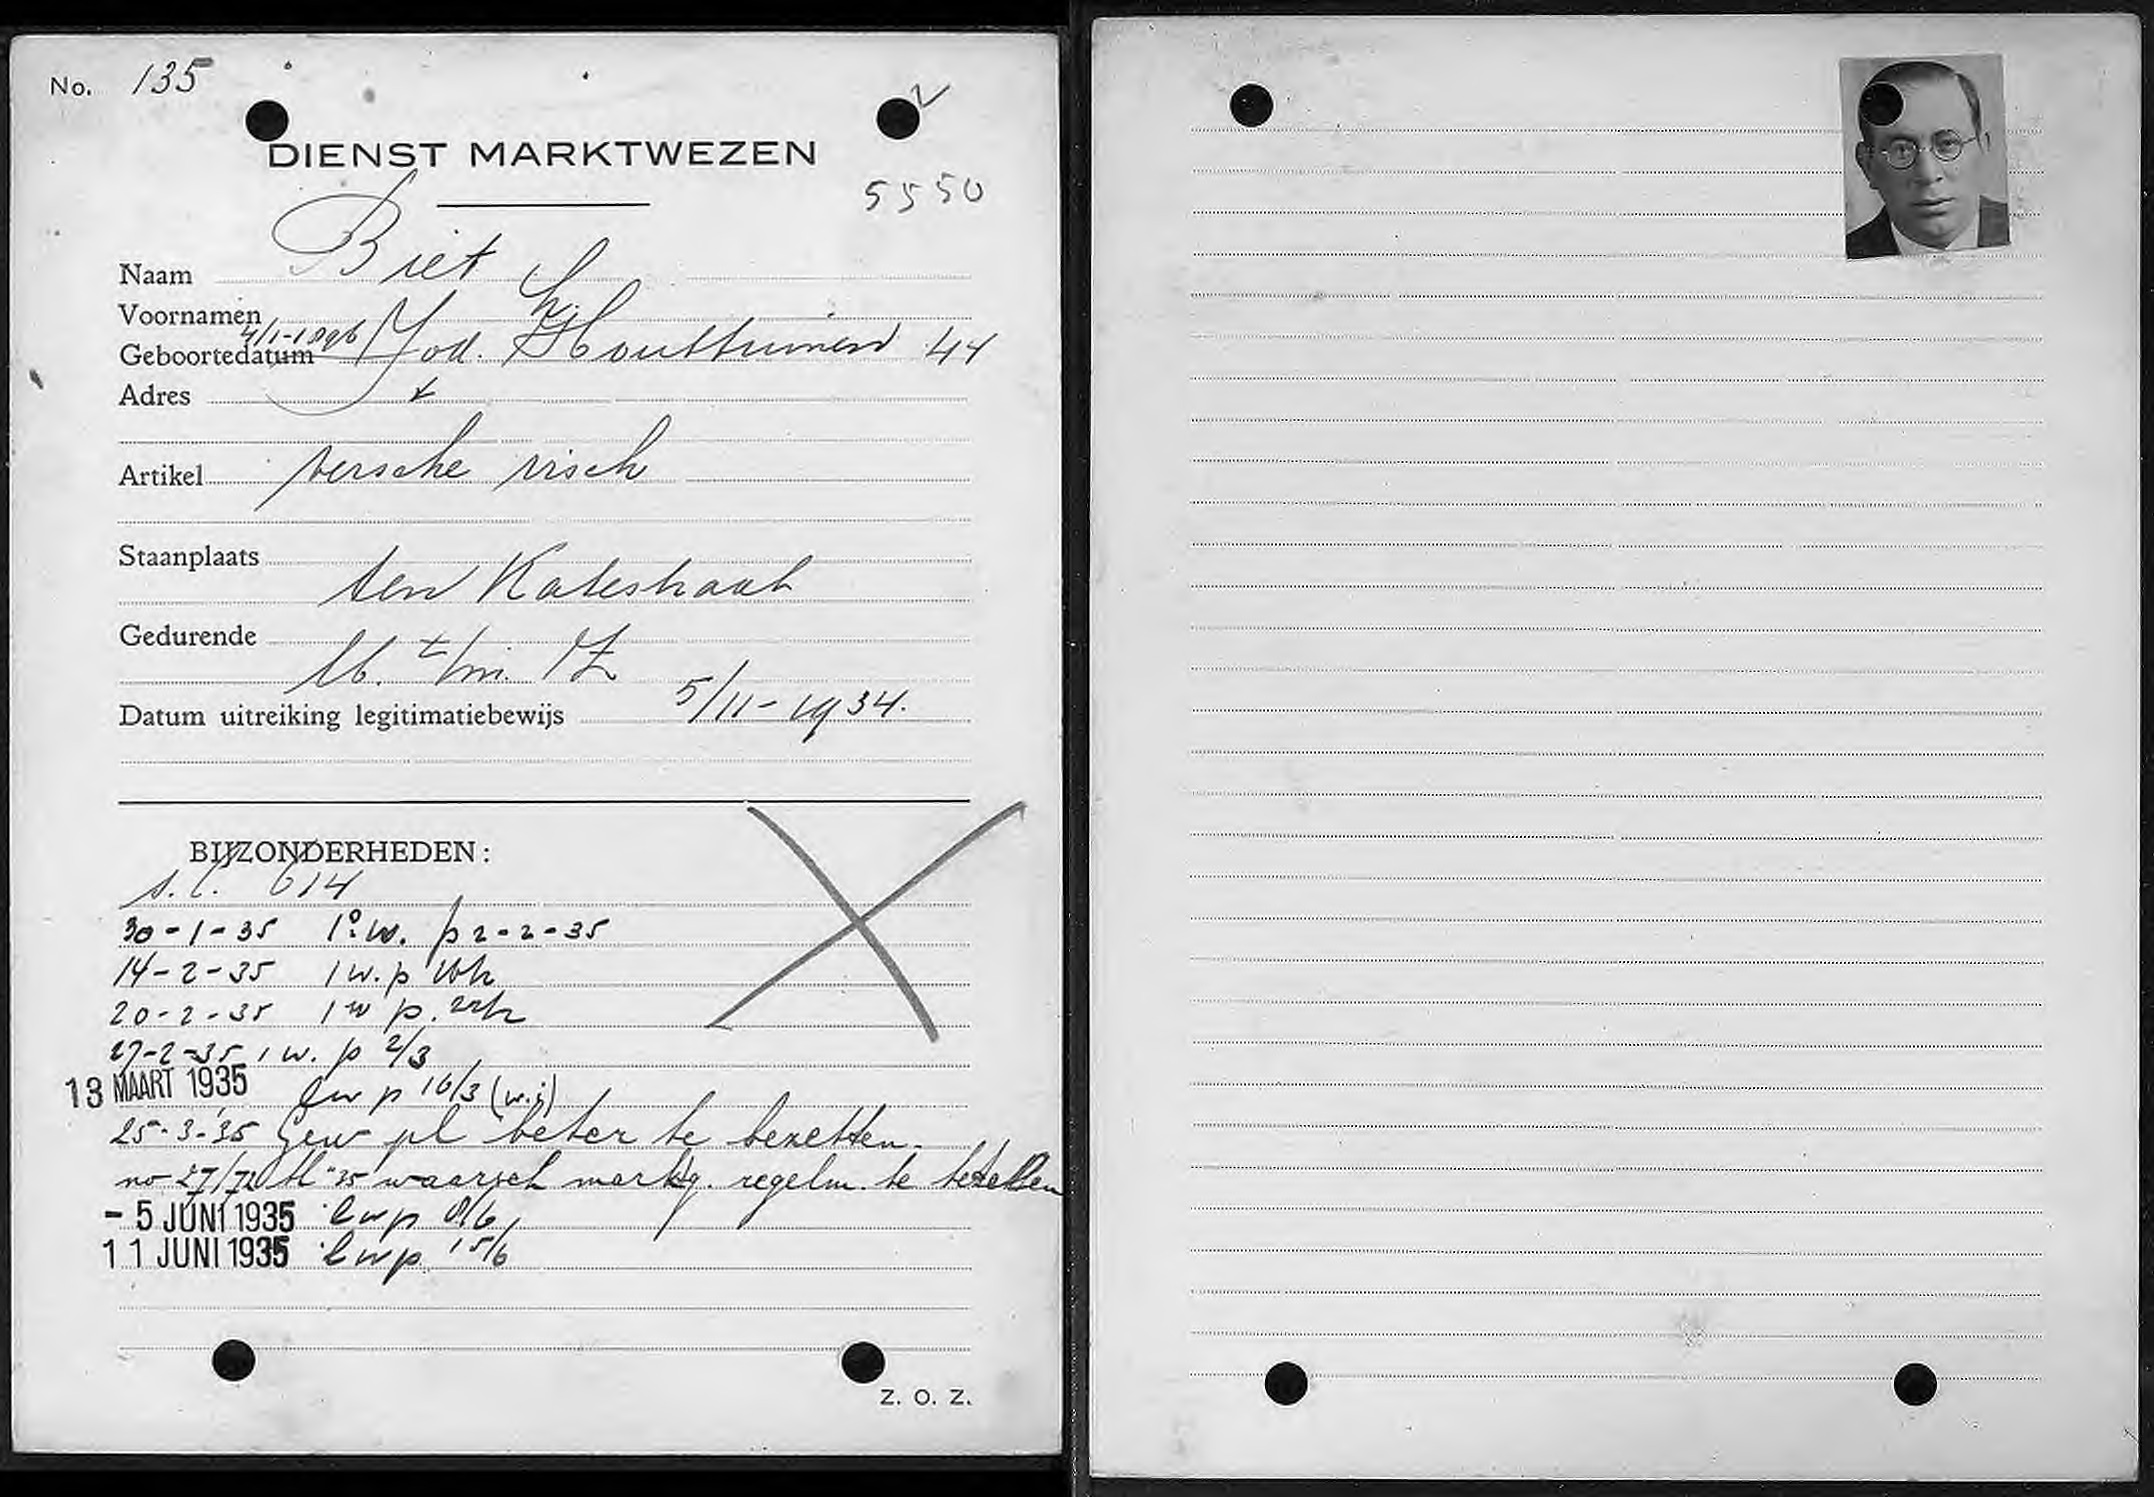 No. 135
DIENST MARKTWEZEN
5550
Naam Biet
Voornamen
Geboortedatum 4/1-1896 Jod. Houttuinen 44
Adres
Artikel versche visch
Staanplaats ten Katestraat
Gedurende M. t/m. Z
Datum uitreiking legitimatiebewijs 5/11-1934.
BIJZONDERHEDEN:
s.l. 614
30-1-35 1e w. p 2-2-35
14-2-35 1 w. p
20-2-35 1 w p.
27-2-35 1 w. p 2/3
13 MAART 1935 1 w p 16/3 (w.i)
25-3-35 Gew pl beter te bezetten.
no 27/ waarsch marktg. regelm. te betalen
- 5 JUNI 1935 1 w p 8/6
11 JUNI 1935 1 w p 15/6
Z. O. Z.